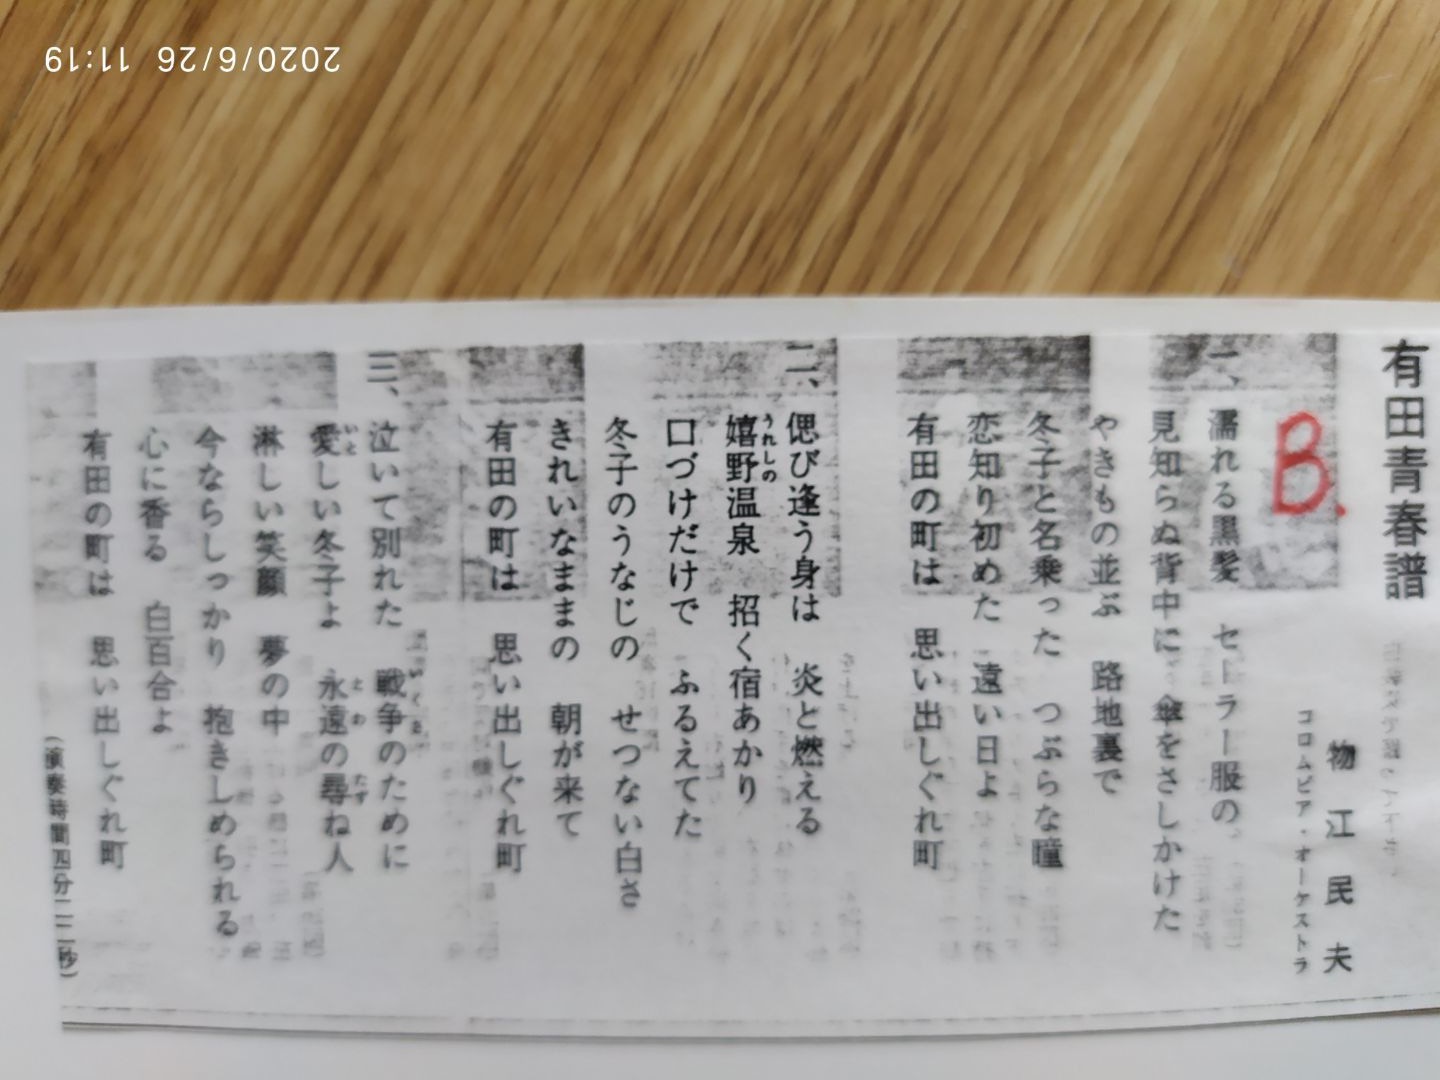 有田青春譜
物江民夫
コロムビア・オーケストラ
B.
一、濡れる黒髪 セーラー服の
見知らぬ背中に 傘をさしかけた
やきもの並ぶ 路地裏で
冬子と名乗った つぶらな瞳
恋知り初めた 遠い日よ
有田の町は 思い出しぐれ町
二、偲び逢う身は 炎と燃える
嬉野温泉 招く宿あかり
うれしの
口づけだけで ふるえてた
冬子のうなじの せつない白さ
きれいなままの 朝が来て
有田の町は 思い出しぐれ町
三、泣いて別れた 戦争のために
いくさ
愛しい冬子よ 永遠の尋ね人
いと とわ たず
淋しい笑顔 夢の中
今ならしっかり 抱きしめられる
心に香る 白百合よ
有田の町は 思い出しぐれ町
(演奏時間四分二二秒)
2020/6/26 11:19